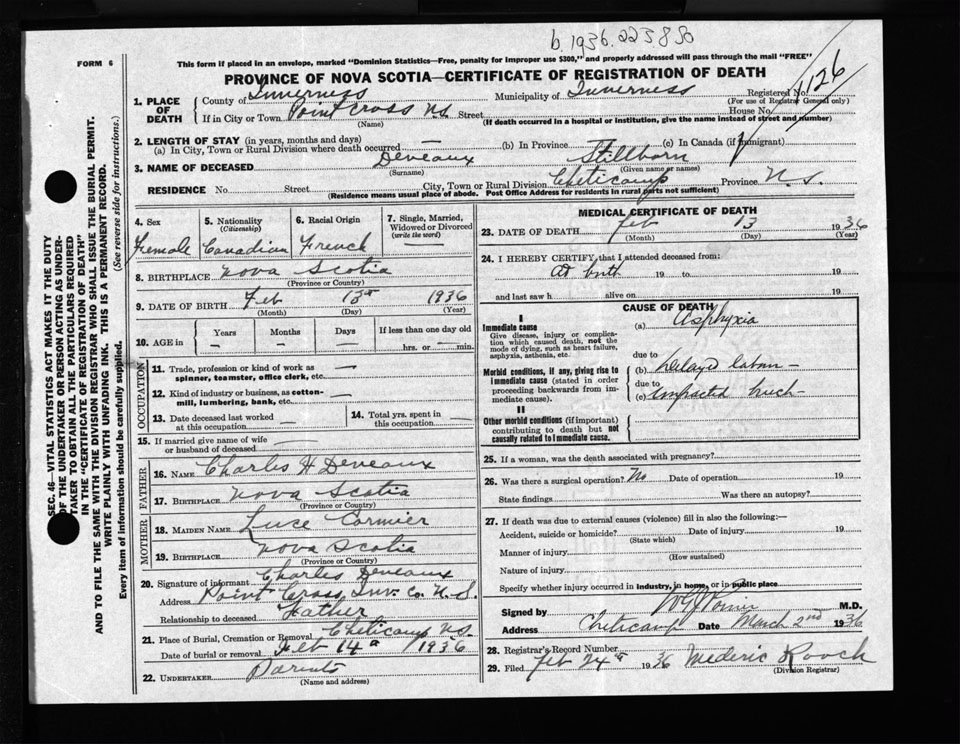 b.1936.223880
FORM 6
This form if placed in an envelope, marked "Dominion Statistics—Free, penalty for improper use $300," and properly addressed will pass through the mail "FREE"
PROVINCE OF NOVA SCOTIA—CERTIFICATE OF REGISTRATION OF DEATH
1. PLACE OF DEATH
County of Inverness Municipality of Inverness Registered No. 126
(For use of Registrar General only)
If in City or Town Point Cross N.S. Street House No.
(Name) (If death occurred in a hospital or institution, give the name instead of street and number)
2. LENGTH OF STAY (in years, months and days)
(a) In City, Town or Rural Division where death occurred (b) In Province (c) In Canada (if immigrant)
3. NAME OF DECEASED Deveaux Stillborn
(Surname) (Given name or names)
RESIDENCE No. Street City, Town or Rural Division Cheticamp Province N.S.
(Residence means usual place of abode. Post Office Address for residents in rural parts not sufficient)
4. Sex Female
5. Nationality (Citizenship) Canadian
6. Racial Origin French
7. Single, Married, Widowed or Divorced (write the word)
8. BIRTHPLACE Nova Scotia
(Province or Country)
9. DATE OF BIRTH Feb 13 1936
(Month) (Day) (Year)
10. AGE in Years Months Days If less than one day old
— — — hrs. or — min.
OCCUPATION
11. Trade, profession or kind of work as spinner, teamster, office clerk, etc. —
12. Kind of industry or business, as cotton-mill, lumbering, bank, etc. —
13. Date deceased last worked at this occupation —
14. Total yrs. spent in this occupation —
15. If married give name of wife or husband of deceased —
FATHER
16. NAME Charles H Deveaux
17. BIRTHPLACE Nova Scotia
(Province or Country)
MOTHER
18. MAIDEN NAME Luce Cormier
19. BIRTHPLACE Nova Scotia
(Province or Country)
20. Signature of informant Charles Deveaux
Address Point Cross Inv. Co. N.S.
Relationship to deceased Father
21. Place of Burial, Cremation or Removal Cheticamp N.S.
Date of burial or removal Feb 14 1936
22. UNDERTAKER Parents
(Name and address)
MEDICAL CERTIFICATE OF DEATH
23. DATE OF DEATH Feb 13 1936
(Month) (Day) (Year)
24. I HEREBY CERTIFY that I attended deceased from:
At birth 19 to 19
and last saw h alive on 19
CAUSE OF DEATH
I
Immediate cause
Give disease, injury or complication which caused death, not the mode of dying, such as heart failure, asphyxia, asthenia, etc.
(a) Asphyxia
due to
Morbid conditions, if any, giving rise to immediate cause (stated in order proceeding backwards from immediate cause).
(b) Delayed labour —
due to
(c) impacted breech —
II
Other morbid conditions (if important) contributing to death but not causally related to immediate cause.
25. If a woman, was the death associated with pregnancy?
26. Was there a surgical operation? No Date of operation 19
State findings Was there an autopsy?
27. If death was due to external causes (violence) fill in also the following:—
Accident, suicide or homicide? Date of injury 19
(State which)
Manner of injury
(How sustained)
Nature of injury
Specify whether injury occurred in industry, in home, or in public place
Signed by M.D.
Address Cheticamp Date March 2nd 1936
28. Registrar's Record Number
29. Filed Feb 24 1936 Mederic Roach
(Division Registrar)
SEC. 46—VITAL STATISTICS ACT MAKES IT THE DUTY
OF THE UNDERTAKER OR PERSON ACTING AS UNDER-
TAKER TO OBTAIN ALL THE PARTICULARS REQUIRED
IN THE "CERTIFICATE OF REGISTRATION OF DEATH"
AND TO FILE THE SAME WITH THE DIVISION REGISTRAR WHO SHALL ISSUE THE BURIAL PERMIT.
WRITE PLAINLY WITH UNFADING INK. THIS IS A PERMANENT RECORD.
Every item of information should be carefully supplied. (See reverse side for instructions.)